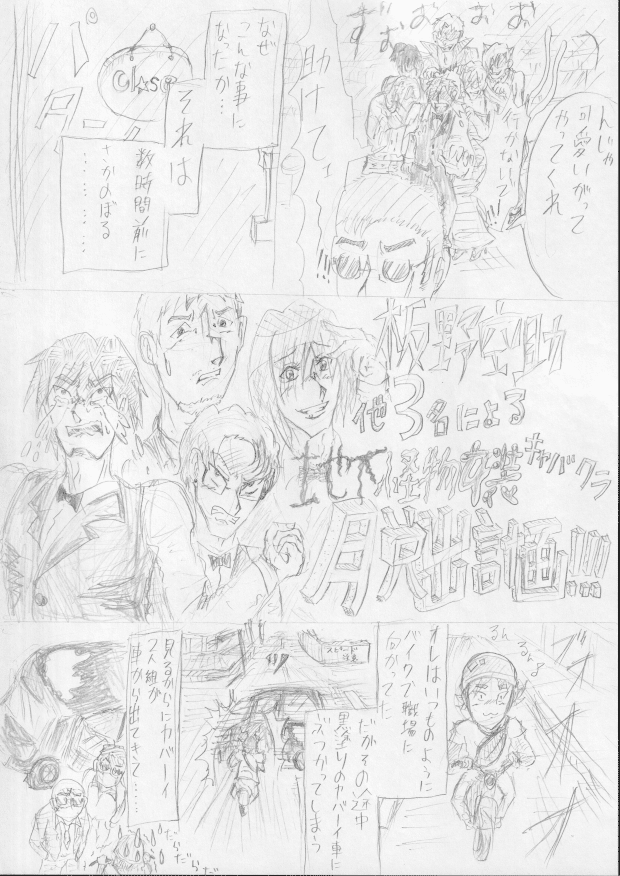 ずおおおおお
んじゃ
可愛いがって
やってくれ
行かないで!
助けてェ
!!!
なぜ
こんな事に
なったか…
それは
数時間前に
さかのぼる
…………
Close
板野空助
他3名による
怪物女装キャバクラ
脱出計画!!!!
るんるんる
オレはいつものように
バイクで職場に
向かってた
だがその途中
黒塗りのヤバーイ車に
ぶつかってしまう
スピード
注意
見るからにヤバーイ
2人組が
車から出てきて……
だらだらだ